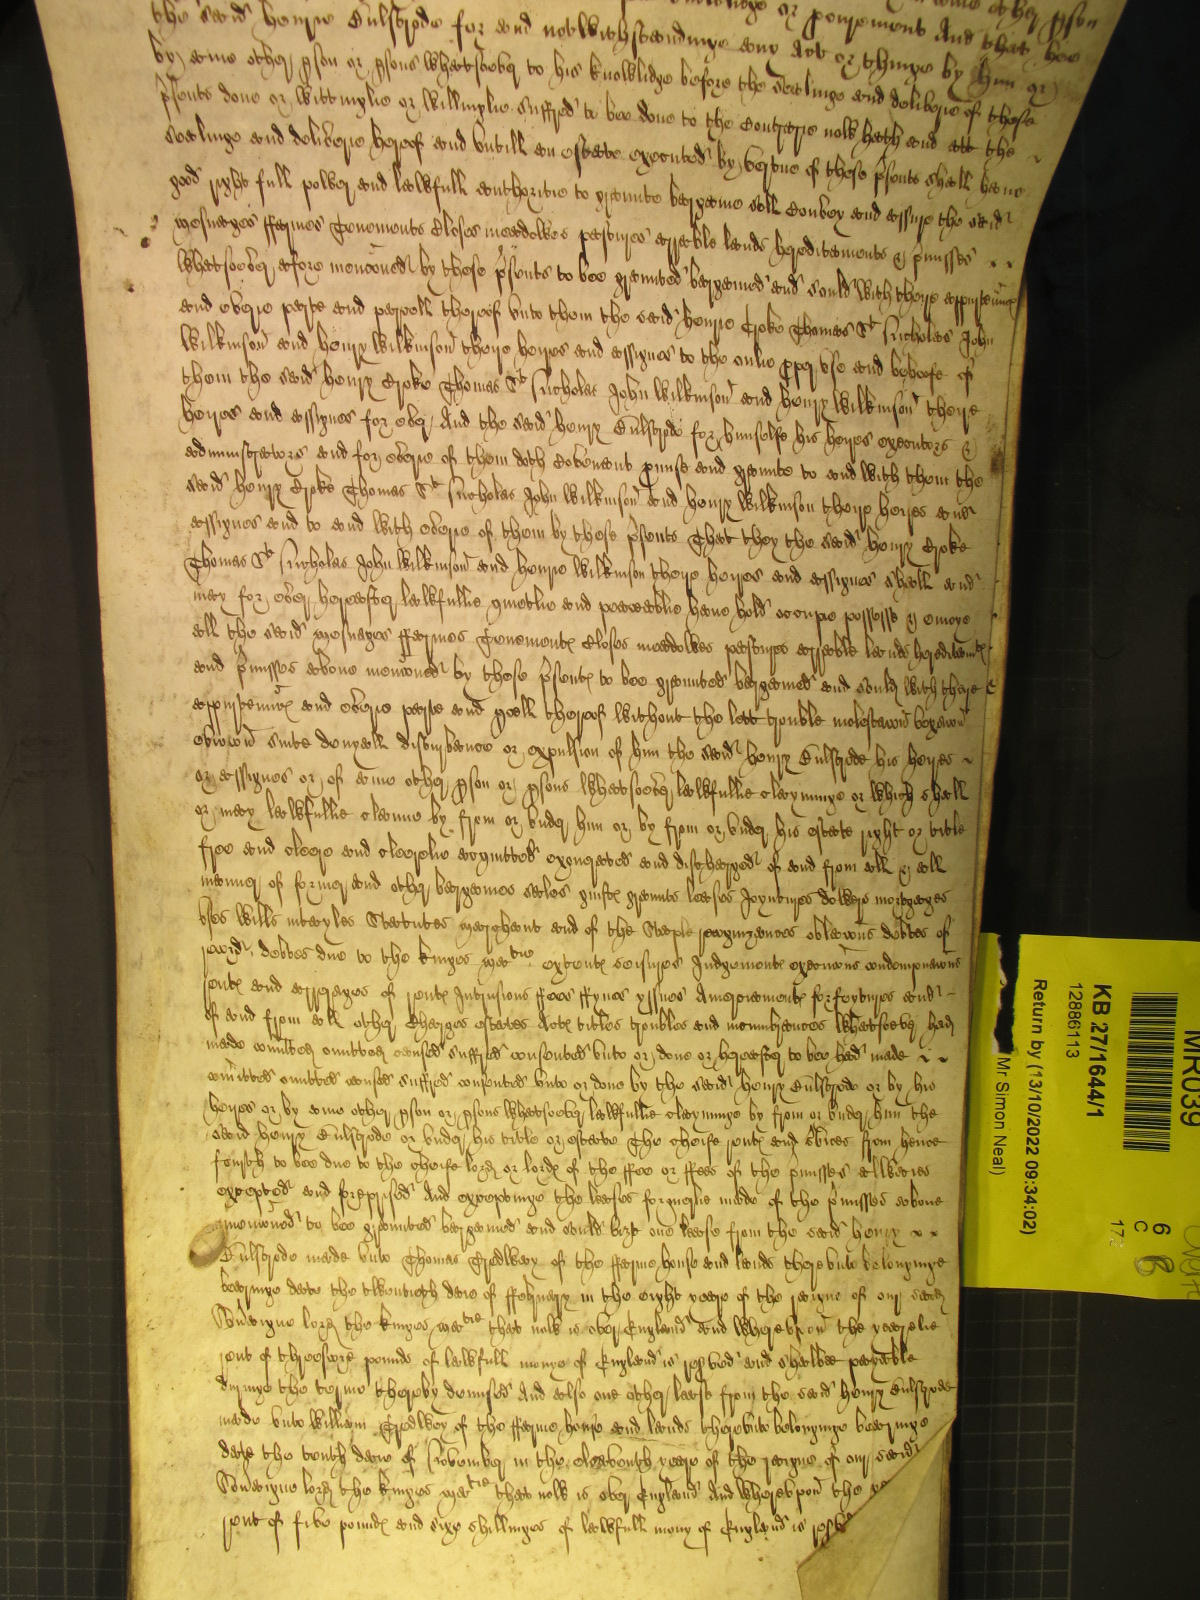 the said Henrie Bulstrode for and notwithstandinge any Act or thinge by him or
by anie other pson or psons whatsoever to his knowlidge before the sealinge and deliverie of these
psents done or wittinglie or willinglie suffred to bee done to the contrarie now hath and att the
sealinge and deliverie hereof and untill an estate executed by vertue of these psents shall have
good right full power and lawfull authoritie to graunte bargaine sell convey and assure the said
mesuages ffarmes Tenements Closes meadowes pastures arrable lands hereditaments & pmisses
whatsoever afore mencioned by these psents to bee graunted bargained and sould with there appurtenncs
and everie parte and parcell thereof unto them the said Henrie Croke Thomas St Nicholas John
Wilkinson and Henry Wilkinson there heires and assignes to the onlie pper use and behoofe of
them the said Henry Croke Thomas St Nicholas John Wilkinson and Henry Wilkinson there
heires and assignes for ever And the said Henry Bulstrode for himselfe his heires executors &
administrators and for everie of them doth covenant pmise and graunte to and with them the
said Henry Croke Thomas St Nicholas John Wilkinson and Henry Wilkinson there heires and
assignes and to and with everie of them by these psents That they the said Henry Croke
Thomas St Nicholas John Wilkinson and Henrie Wilkinson there heires and assignes shall and
may for ever hereafter lawfullie quietlie and peaceablie have hold occupie possesse & enioye
all the said mesuages ffarmes Tenements Closes meadowes pastures arrable lands hereditamts
and pmisses above mencioned by these psents to bee graunted bargained and sould with there
appurtenncs and everie parte and pcell thereof without the lett trouble molestacion vexacion
eviccion suite denyall disturbance or expulsion of him the said Henry Bulstrode his heires
or assignes or of anie other pson or psons whatsoever lawfullie clayminge or which shall
or may lawfullie claime by from or under him or by from or under his estate right or title
free and cleere and cleerelie acquitted exonerated and discharged of and from all & all
manner of former and other bargaines sales guifts graunts leases Joyntures dowers mortgages
uses wills intayles Statutes marchant and of the Staple recognizances obligacions debtes of
record debtes due to the Kinges matie extents seisures Judgements execucions condempnacions
rents and arrerages of rents Intrusions ffees ffynes yssues Amerciaments forfeytures and
of and from all other charges estates Acts titles troubles and incumbrances whatsoever had
made comitted omitted caused suffred consented unto or done or hereafter to bee had made
comitted omitted caused suffred consented unto or done by the said Henry Bulstrode or by his
heires or by anie other pson or psons whatsoever lawfullie clayminge by from or under him the
said Henry Bulstrode or under his title or estate The cheife rents and services from hence
fourth to bee due to the cheife lord or lords of the ffee or ffees of the pmisses allwaies
excepted and foreprised And exceptinge the leases formerlie made of the pmisses above
mencioned to bee graunted bargained and sould vizt one lease from the said Henry
Bulstrode made unto Thomas Tredway of the ffarme house and lands thereunto belonginge
bearinge date the twentieth daie of ffebruary in the eight yeare of the raigne of our said
Soveraigne lord the Kinges matie that now is over England and whereupon the yearelie
rent of threescore pounds of lawfull monye of England is reserved and shalbee payable
duringe the terme thereby demised And also one other lease from the said Henry Bulstrode
made unto William Tredwey of the ffarme house and lands thereunto belonginge bearinge
date the tenth daie of November in the eleaventh yeare of the raigne of our said
Soveraigne lord the Kinges matie that now is over England And whereupon the
rent of five pounds and sixe shillinges of lawfull mony of England is
MR039
KB 27/1644/1
12886113
Return by (13/10/2022 09:34:02)
Mr Simon Neal)
6
C